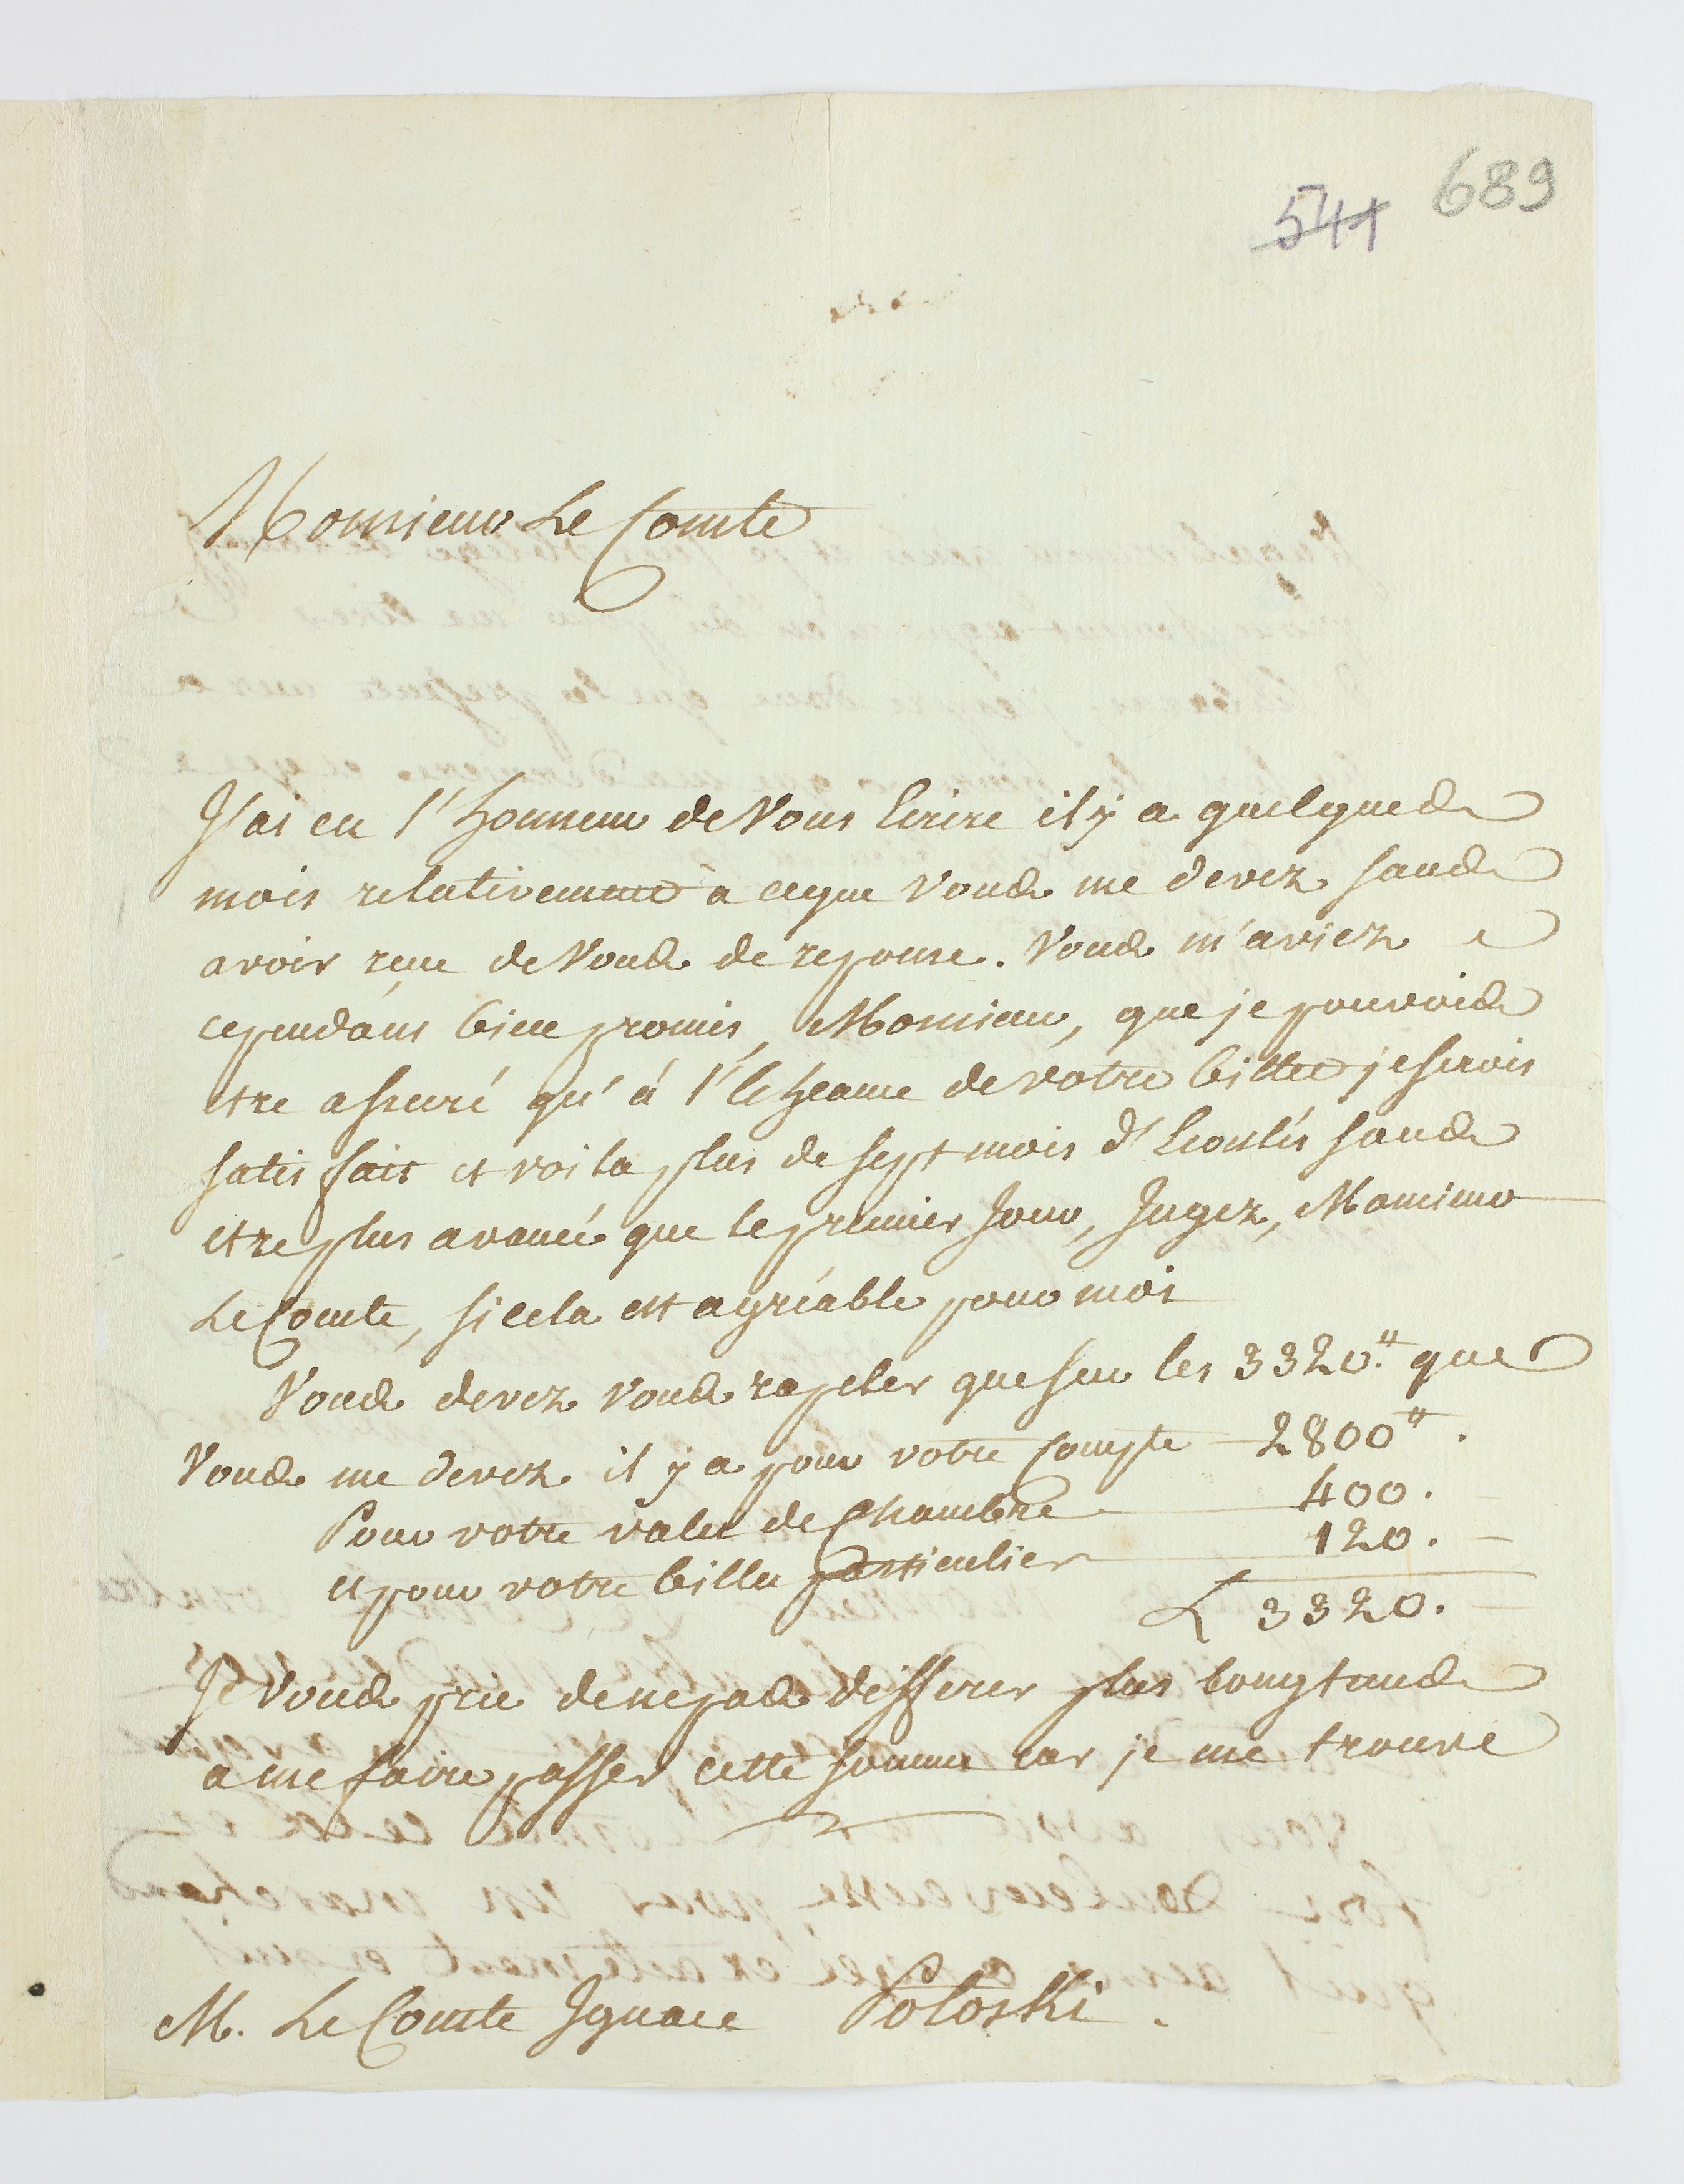 541 689
Monsieur Le Comte
J'ai eu l'honneur de Vous Ecrire il y a quelques
mois relativement a ceque Vous me devez sans
avoir reçue de Vous de reponse. Vous m'aviez
cependans bien promis, Monsieur, que je pouvois
etre assuré qu'á l'Echeance de votre billet je serois
satisfait et voila plus de sept mois d'Ecoulés sans
etre plus avancé que le premier Jour, Jugez, Monsieur
Le Comte, si cela est agréable pour moi
Vous devez vous rapeler que sur les 3320.# que
Vous me devez il y a pour votre Compte 2800#.
Pour votre valet de Chambre 400.
et pour votre billet particulier 120.
L 3320.
Je Vous prie de ne pas differer plus longtems
a me faire passer cette somme car je me trouve
M. Le Comte Ignace Potoski.